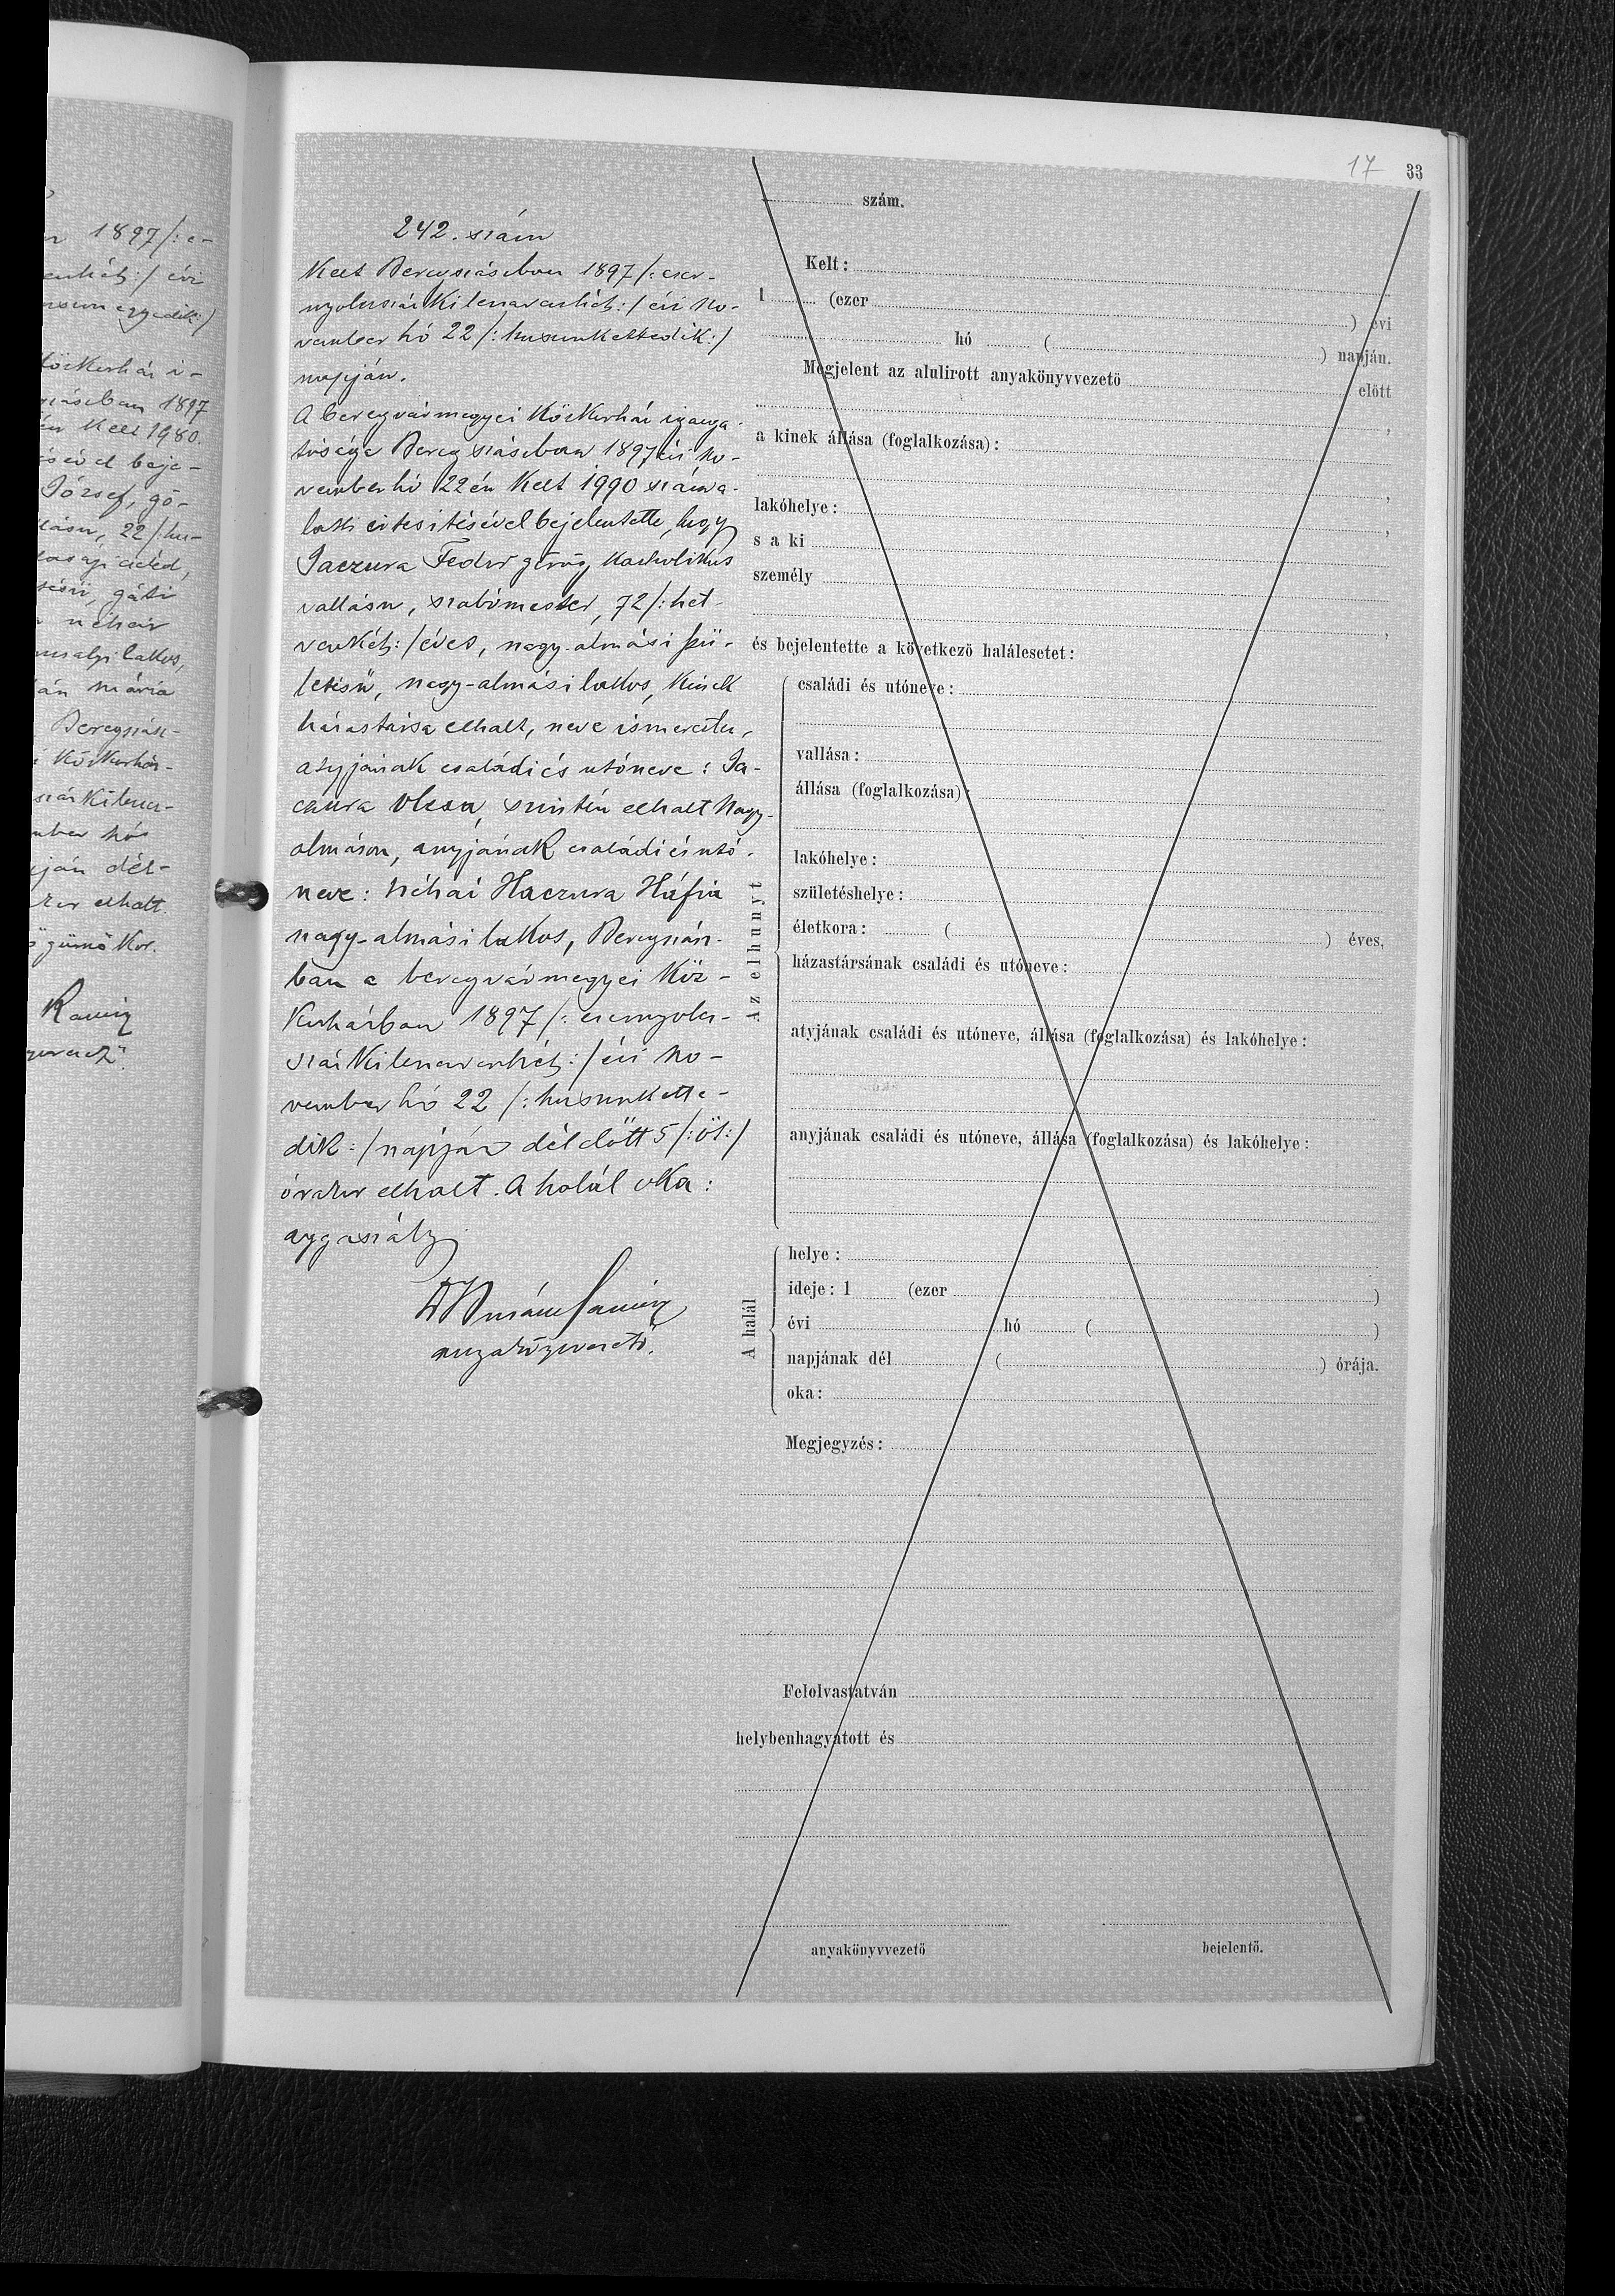 n 1897 /: e-
enhét :/ évi
egyedik :/
közkorház i-
szászban 1897
én kelt 1980.
ésével beje-
József, gö-
llásu, 22 /: hu-
tésü, gáti
néhai
lakos,
án Mária
Beregszász-
i közkorház-
száz kilen-
mber hó
pján dél-
kor elhalt.
gümőkór.
17 33
242. szám
Kelt Beregszászban 1897 /: ezer-
nyolcszázkilencvenhét :/ évi no-
vember hó 22 /: huszonkettedik :/
napján.
A beregvármegyei közkorház igazga-
tósága Beregszászban 1897 évi no-
vember hó 22én kelt 1990 száma-
latti értesitésével bejelentette, hogy
Jaczura Fedor görög katholikus
vallásu, szabómester, 72 /: het-
venkét :/ éves, nagy-almási szü-
letésü, nagy-almási lakos, kinek
házastársa elhalt, neve ismeretlen,
atyjának családi és utóneve: Ja-
czura Olexa, szintén elhalt Nagy-
almáson, anyjának családi és utó-
neve: néhai Haczura Háfia
nagy-almási lakos, Beregszász-
ban a beregvármegyei köz-
korházban 1897 /: ezernyolcz-
százkilencvenhét :/ évi no-
vember hó 22 /: huszonkette-
dik :/ napján dél előtt 5 /: öt :/
órakor elhalt. A halál oka:
aggaszály
anyakönyvvezető.
szám.
Kelt:
1 (ezer ) évi
hó ( ) napján.
Megjelent az alulirott anyakönyvvezető előtt
,
a kinek állása (foglalkozása):
,
lakóhelye: ,
s a ki
személy
,
és bejelentette a következő halálesetet:
Az elhunyt
családi és utóneve:
vallása:
állása (foglalkozása):
lakóhelye:
születéshelye:
életkora: ( ) éves,
házastársának családi és utóneve:
atyjának családi és utóneve, állása (foglalkozása) és lakóhelye:
anyjának családi és utóneve, állása (foglalkozása) és lakóhelye:
A halál
helye:
ideje: 1 (ezer )
évi hó ( )
napjának dél ( ) órája.
oka:
Megjegyzés:
Felolvastatván
helybenhagyatott és
anyakönyvvezető bejelentő.